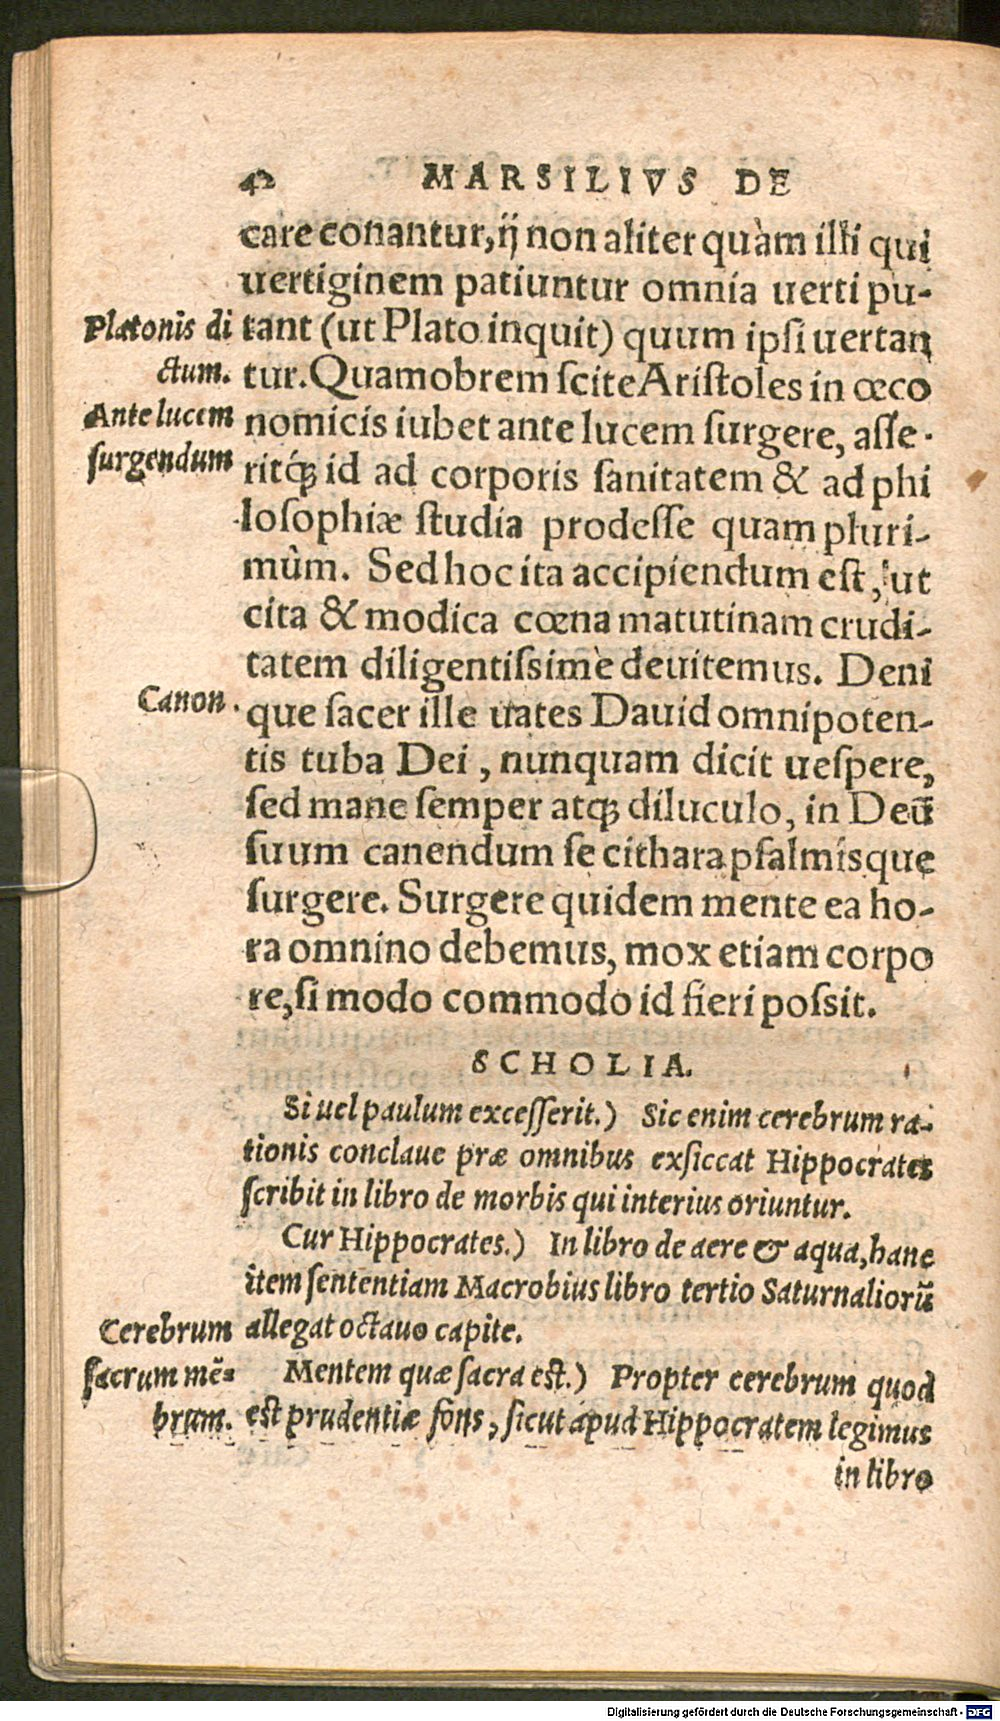 42 MARSILIVS DE
care conantur, ij non aliter quàm illi qui
uertiginem patiuntur omnia uerti pu-
Platonis di
tant (ut Plato inquit) quum ipsi uertan
ctum.
tur. Quamobrem scite Aristoles in œco
Ante lucem
nomicis iubet ante lucem surgere, asse-
surgendum
ritq́ꝫ id ad corporis sanitatem & ad phi
losophiæ studia prodesse quam pluri-
mùm. Sed hoc ita accipiendum est, ut
cita & modica cœna matutinam crudi-
tatem diligentissimè deuitemus. Deni
Canon.
que sacer ille uates Dauid omnipoten-
tis tuba Dei, nunquam dicit uespere,
sed mane semper atqꝫ diluculo, in Deū
suum canendum se cithara psalmisque
surgere. Surgere quidem mente ea ho-
ra omnino debemus, mox etiam corpo
re, si modo commodo id fieri possit.
SCHOLIA.
Si uel paulum excesserit.) Sic enim cerebrum ra-
tionis conclaue præ omnibus exsiccat Hippocrates
scribit in libro de morbis qui interius oriuntur.
Cur Hippocrates.) In libro de aere & aqua, hanc
item sententiam Macrobius libro tertio Saturnaliorū
Cerebrum
allegat octauo capite.
sacrum mē-
Mentem quæ sacra est.) Propter cerebrum quod
brum.
est prudentiæ fons, sicut apud Hippocratem legimus
in libro
Digitalisierung gefördert durch die Deutsche Forschungsgemeinschaft - DFG